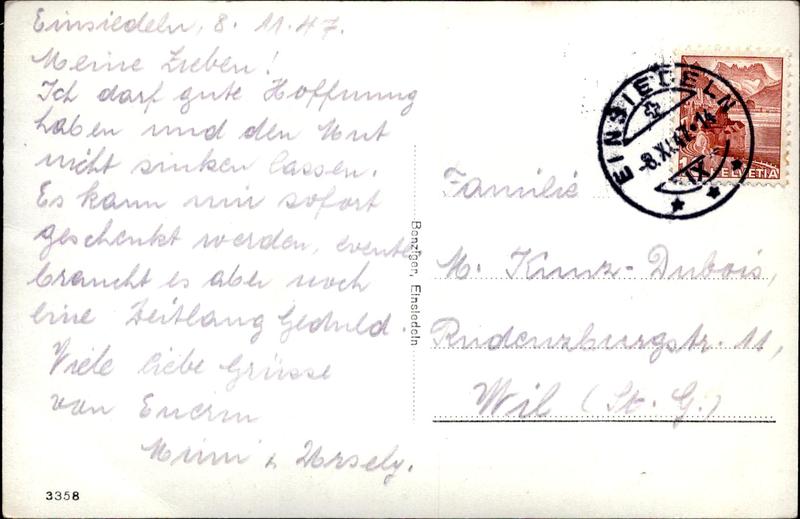 Einsiedeln, 8. 11. 47.
Meine Lieben!
Ich darf gute Hoffnung
haben und den Mut
nicht sinken lassen.
Es kann mir sofort
geschenkt werden, eventl.
braucht es aber noch
eine Zeitlang Geduld.
Viele liebe Grüsse
von Eurem
Mimi & Ursely.
3358
Benziger, Einsiedeln
EINSIEDELN
-8.XI.47.-14
IX
HELVETIA
Familie
M. Kunz-Dubois,
Rudenzburgstr. 11,
Wil (St. G.)